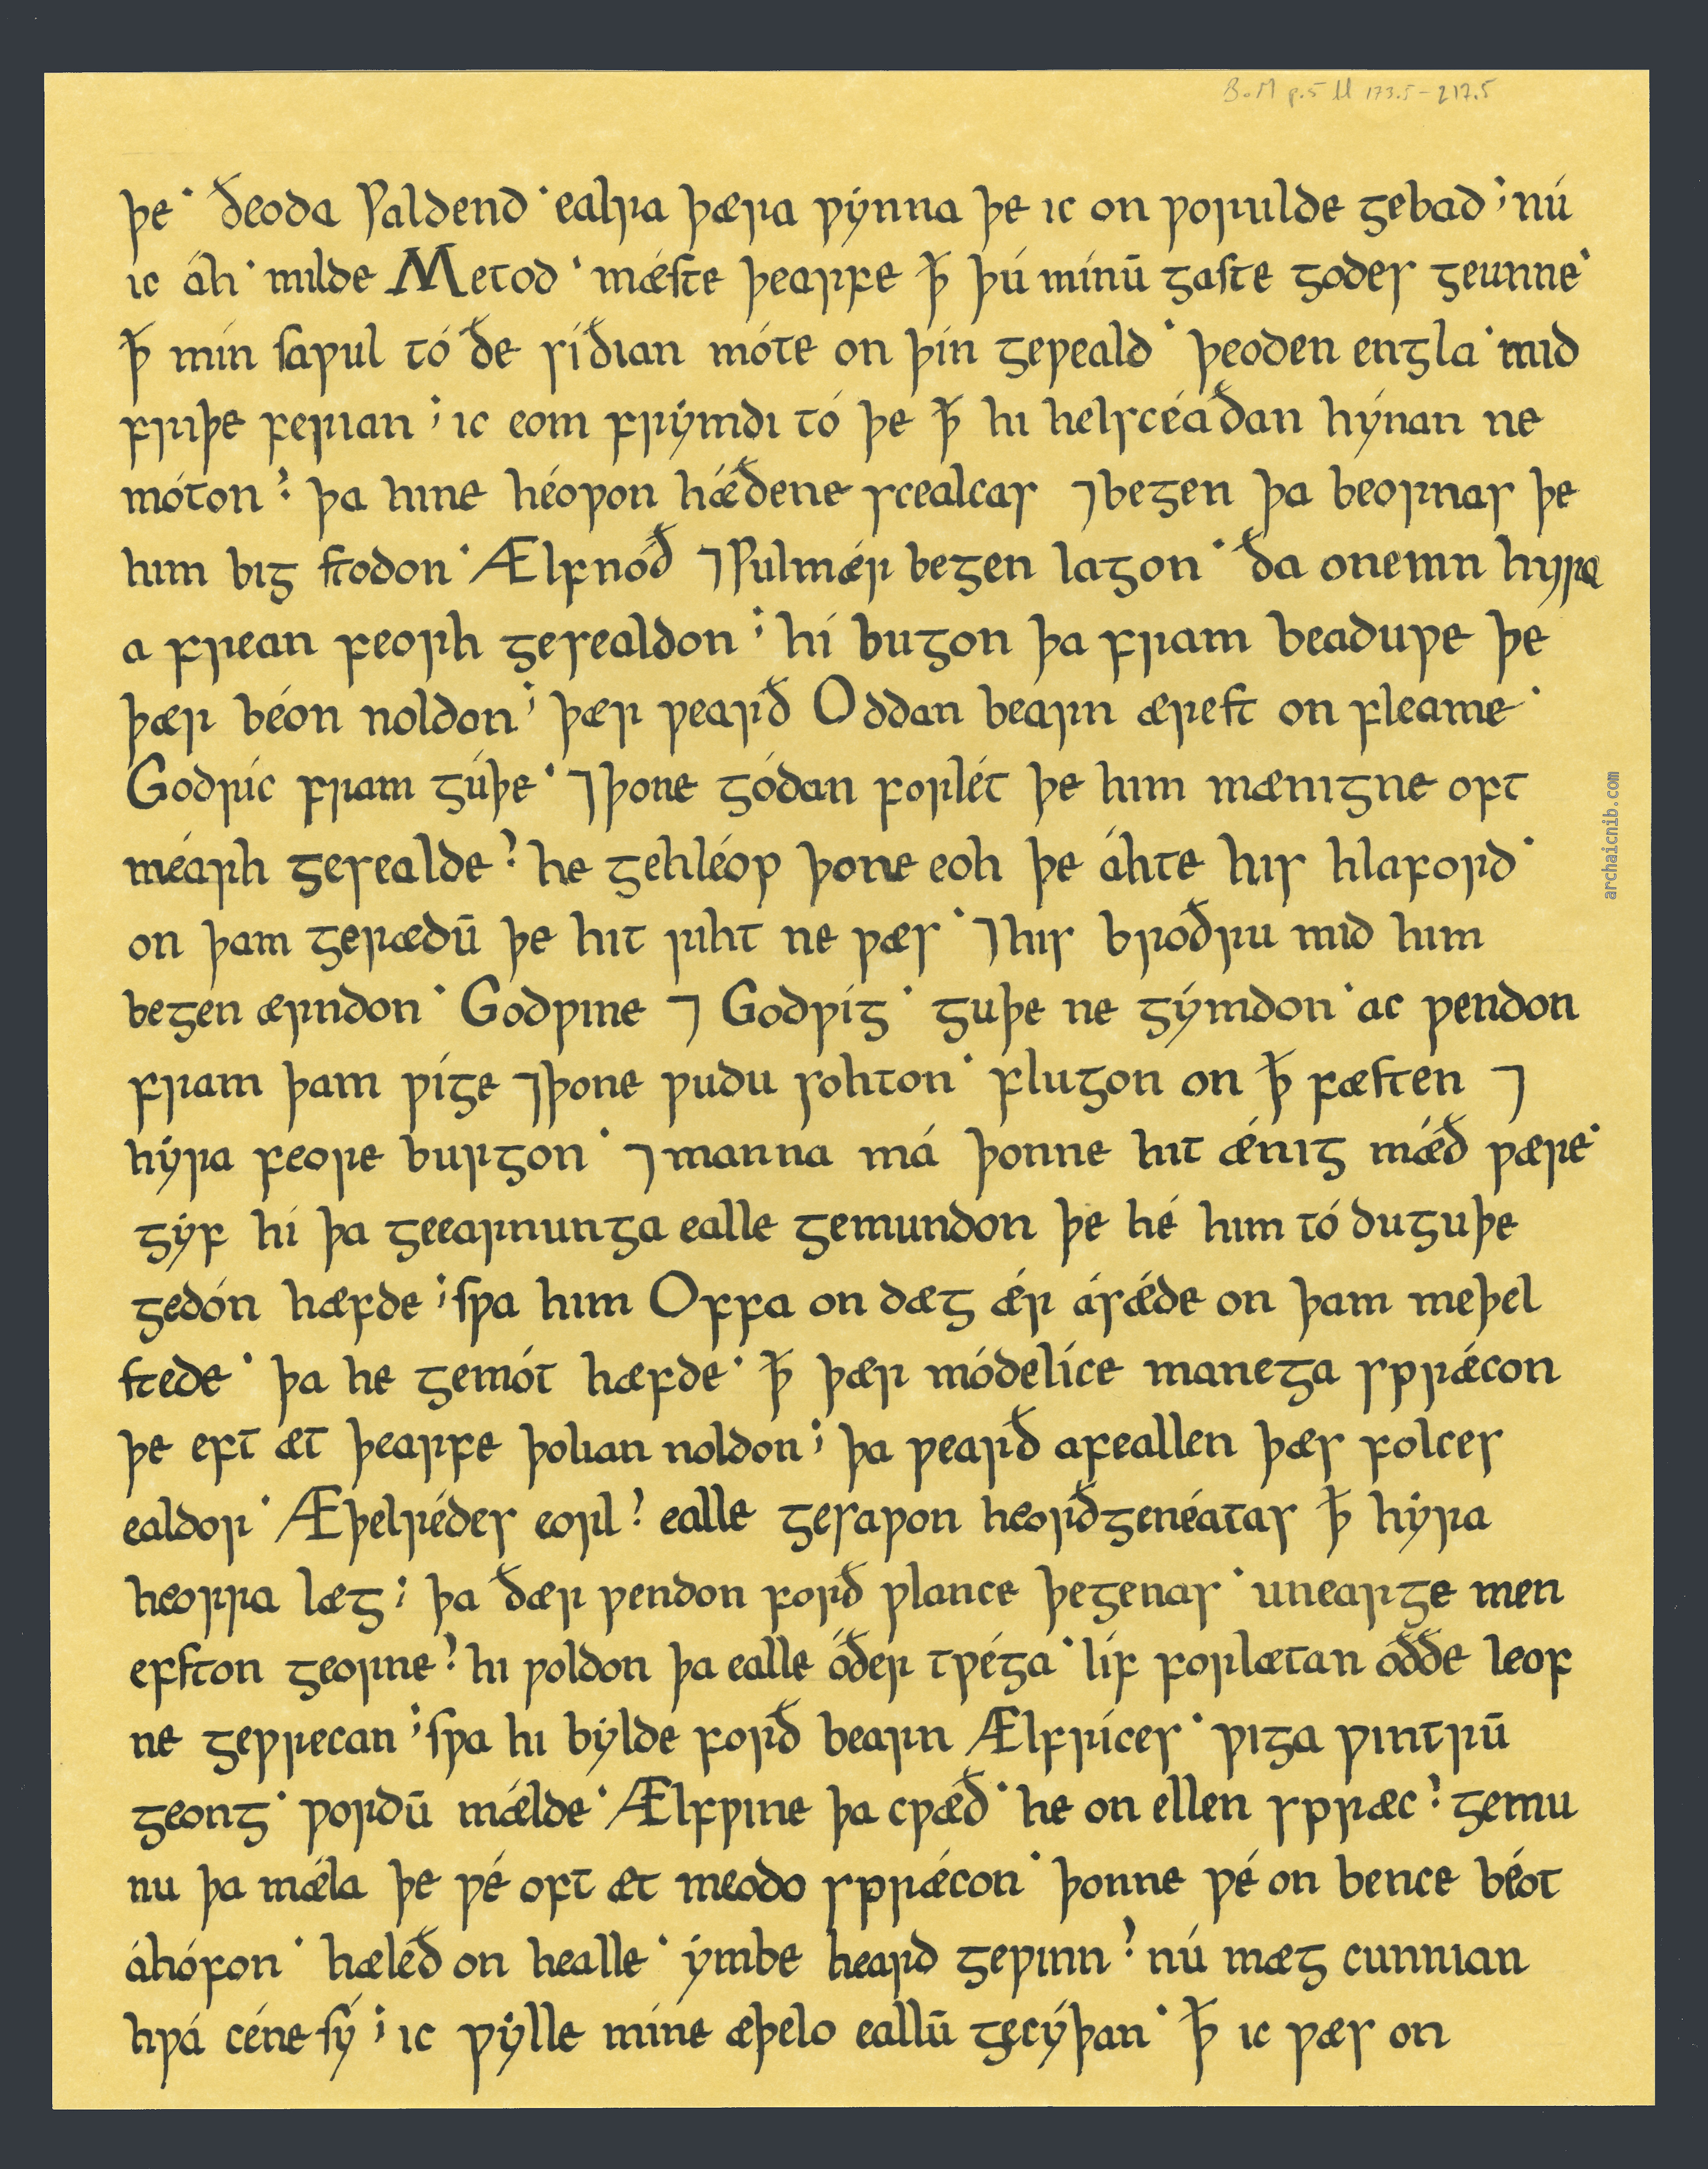 BoM p.5 ll 173.5-217.5
þe · ðeoda Ƿaldend · ealra þæra ƿẏnna þe ıc on ƿorulde gebad ; nú
ıc áh · mılde Metod · mǽſte þearfe ꝥ þú mínū gaſte godes geunne ·
ꝥ mín ſaƿul tó ðe síðıan móte on þín geƿeald · þeoden engla · mıd
frıþe ferıan ; ıc eom frẏmdı tó þe ꝥ hı helscéaðan hýnan ne
móton ? þa hıne héoƿon hǽðene scealcas ⁊ begen þa beornas þe
hım bıg ſtodon · Ælfnóð ⁊ Ƿulmǽr begen lagon · ða onemn hyra
a frean feorh gesealdon ; hí bugon þa fram beaduƿe þe
þær béon noldon ; þær ƿearð Oddan bearn æreſt on fleame ·
Godríc fram gúþe · ⁊ þone gódan forlét þe hım mænıgne oft
méarh gesealde ? he gehléop þone eoh þe áhte hıs hlaford ·
on þam gerædū þe hıt rıht ne ƿæs · ⁊ hıs broðru mıd hım
begen ærndon · Godƿıne ⁊ Godƿíg · guþe ne gẏmdon · ac ƿendon
fram þam ƿíge ⁊ þone ƿudu sohton · flugon on ꝥ fæſten ⁊
hẏra feore burgon · ⁊ manna má þonne hıt ǽnıg mǽð ƿære ·
gẏf hí þa geearnunga ealle gemundon þe hé hım tó duguþe
gedón hæfde ; ſƿa hım Offa on dæg ǽr ásǽde on þam meþel
ſtede · þa he gemót hæfde · ꝥ þær módelíce manega sprǽcon
þe eft æt þearfe þolıan noldon ; þa ƿearð afeallen þæs folces
ealdor · Æþelrédes eorl ? ealle gesaƿon heorðgenéatas ꝥ hẏra
heorra læg ; þa ðær ƿendon forð ƿlance þegenas · unearge men
efſton georne ? hı ƿoldon þa ealle óðer tƿéga · líf forlætan óððe leof
ne geƿrecan ; ſƿa hı bẏlde forð bearn Ælfríces · ƿıga ƿıntrū
geong · ƿordū mǽlde · Ælfƿıne þa cƿæð · he on ellen spræc ? gemu
nu þa mǽla þe ƿé oft æt meodo sprǽcon · þonne ƿé on bence béot
áhófon · hæleð on healle · ẏmbe heard geƿınn ? nú mæg cunnıan
hƿá céne ſý ; ıc ƿẏlle míne æþelo eallū gecýþan · ꝥ ıc ƿæs on
archaicnib.com